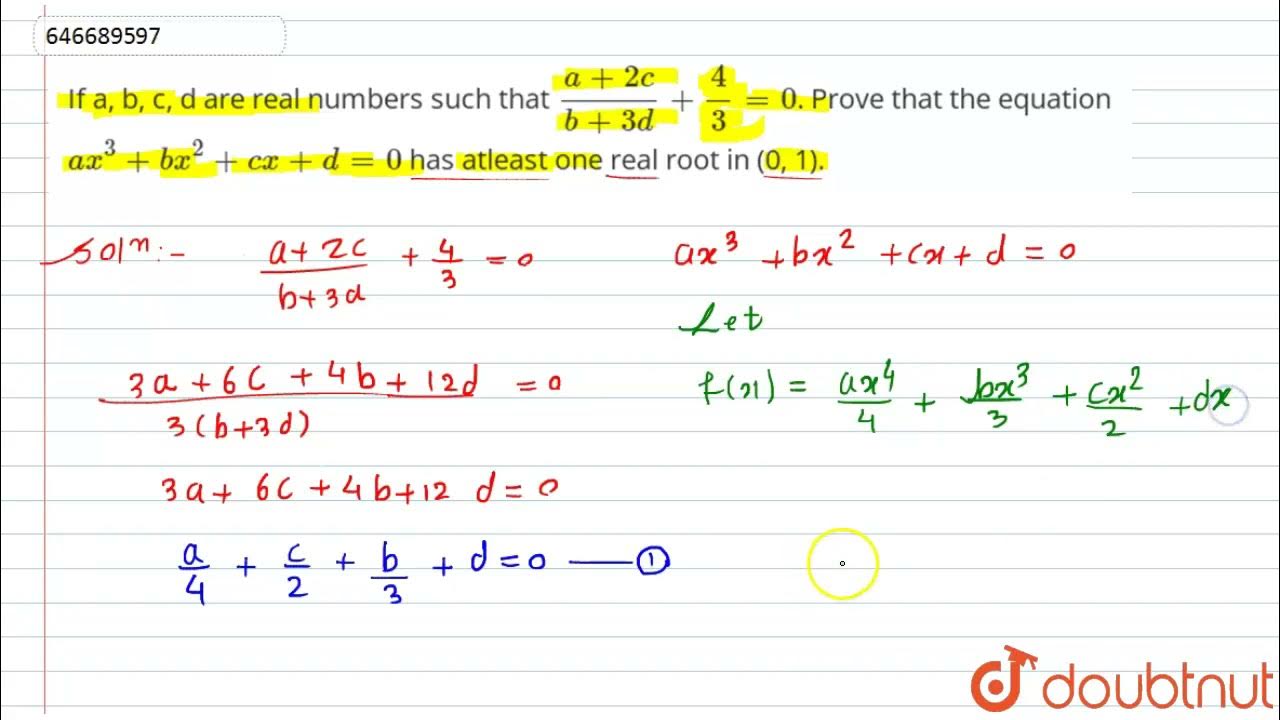 646689597
If a, b, c, d are real numbers such that \frac{a + 2c}{b + 3d} + \frac{4}{3} = 0. Prove that the equation
ax^3 + bx^2 + cx + d = 0 has atleast one real root in (0, 1).
Sol^n :- \frac{a + 2c}{b + 3d} + \frac{4}{3} = 0
\frac{3a + 6c + 4b + 12d}{3(b + 3d)} = 0
3a + 6c + 4b + 12 d = 0
\frac{a}{4} + \frac{c}{2} + \frac{b}{3} + d = 0 — ①
ax^3 + bx^2 + cx + d = 0
Let
f(x) = \frac{ax^4}{4} + \frac{bx^3}{3} + \frac{cx^2}{2} + dx
doubtnut